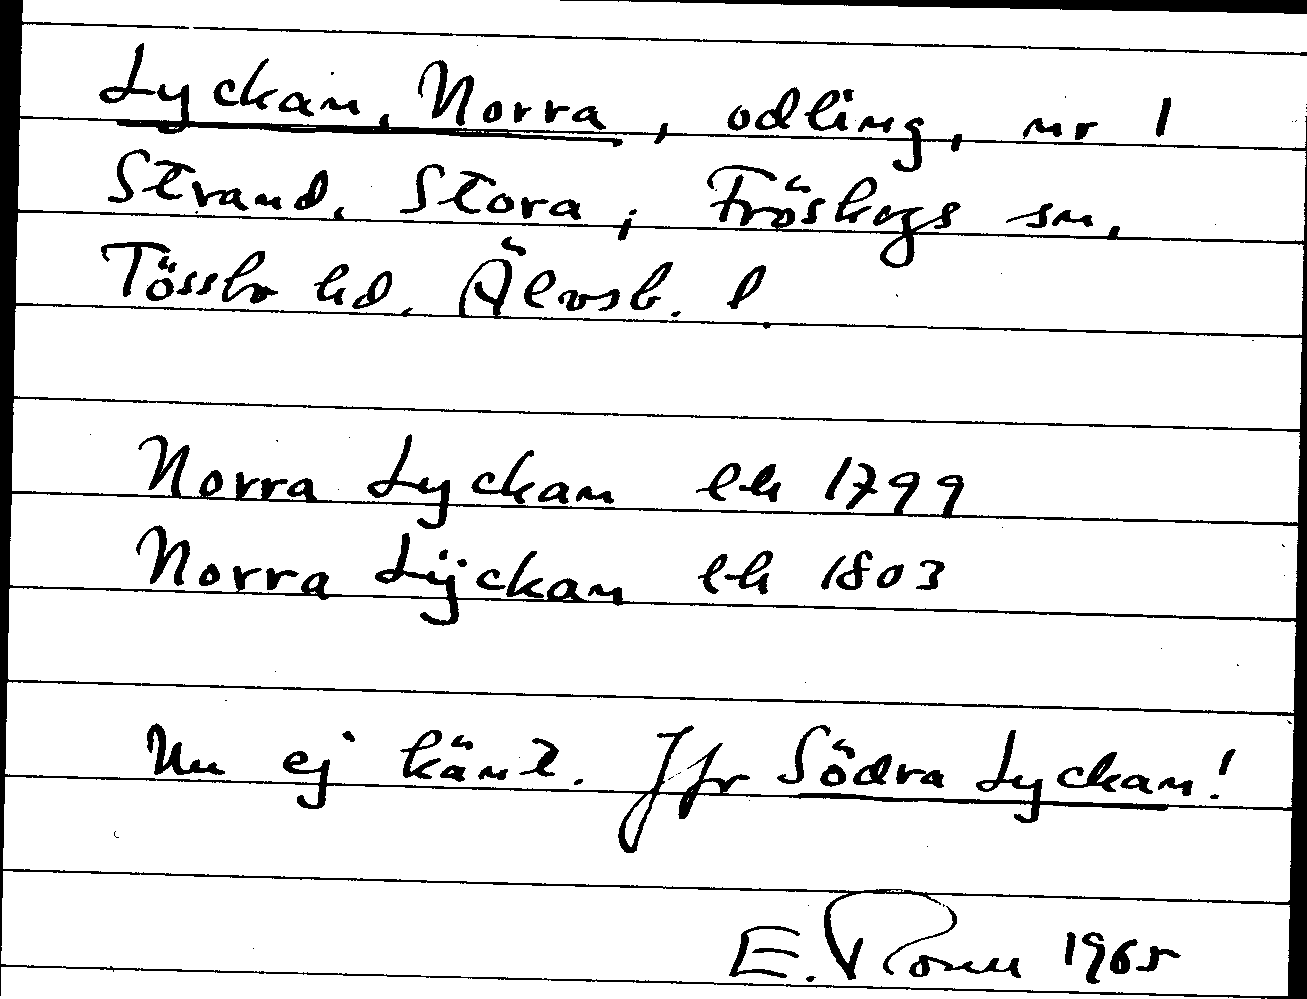 Lyckan, Norra, odling, nr 1
Strand, Stora; Fröskogs sn,
Tössbo hd. Älvsb. l.
Norra Lyckan lh 1799
Norra Lÿckan lh 1803
Nu ej känt. Jfr Södra Lyckan!
E. 1965